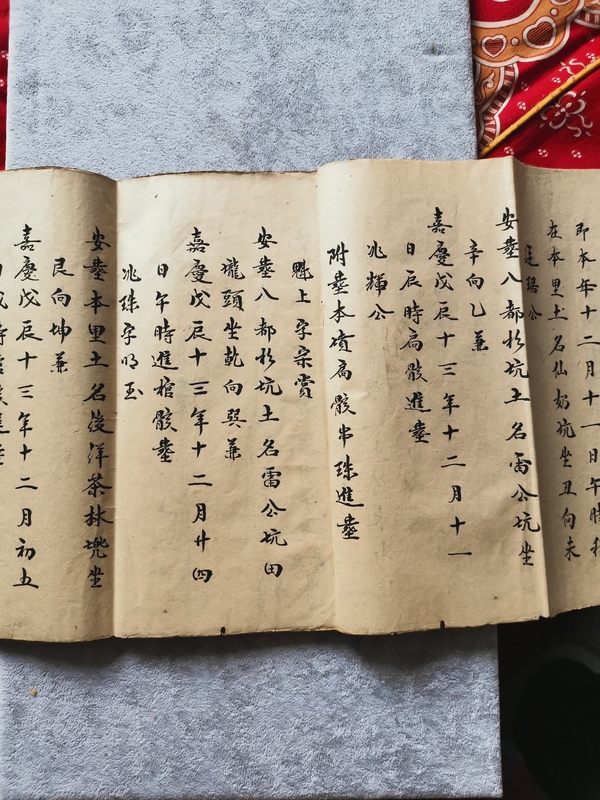 即本年十二月十一日午時
在本里土名仙奶坑坐丑向未
公
安塟八都杉坑土名雷公坑坐
辛向乙兼
嘉慶戊辰十三年十二月十一
日辰時扃骸進塟
兆輝公
附塟本墳扃骸串珠進塟
魁上字宗賞
安塟八都杉坑土名雷公坑田
壠頭坐乾向巽兼
嘉慶戊辰十三年十二月廿四
日午時進棺骸塟
兆珠字明玉
安塟本里土名後洋茶林坐
艮向坤兼
嘉慶戊辰十三年十二月初五
時